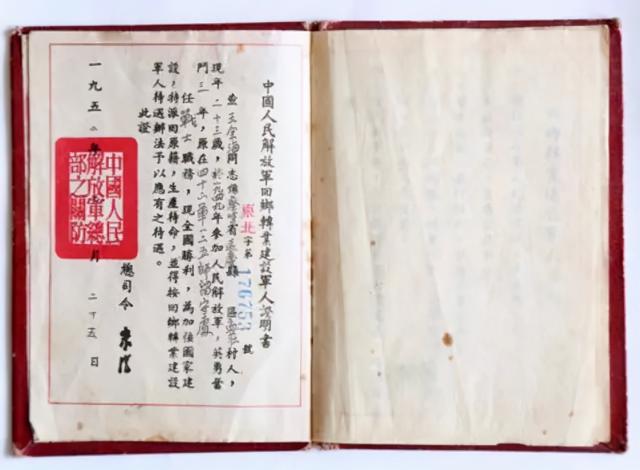 中國人民解放軍回鄉轉業建設軍人證明書
東北字第 176753 號
查王金海同志係省縣 區村人，
現年二十三歲，於一九四九年參加人民解放軍，英勇奮
鬥三年，原在四十二軍一二五師
任戰士職務，現全國勝利，為加強國家建
設，特派回原籍，生產待命，並得按回鄉轉業建設
軍人待遇辦法予以應有之待遇。
此證
總司令 朱德
一九五二年 月二十五日
中國人民
解放軍總
部之關防